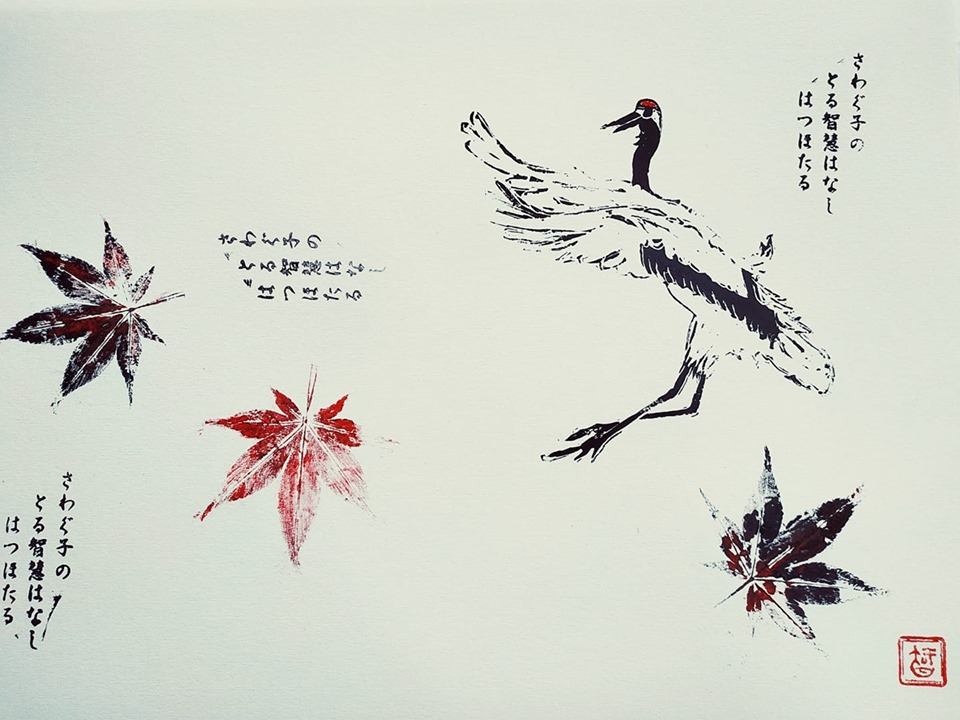 さわぐ子の
とる智慧はなし
はつほたる
さわぐ子の
とる智慧はなし
はつほたる
さわぐ子の
とる智慧はなし
はつほたる